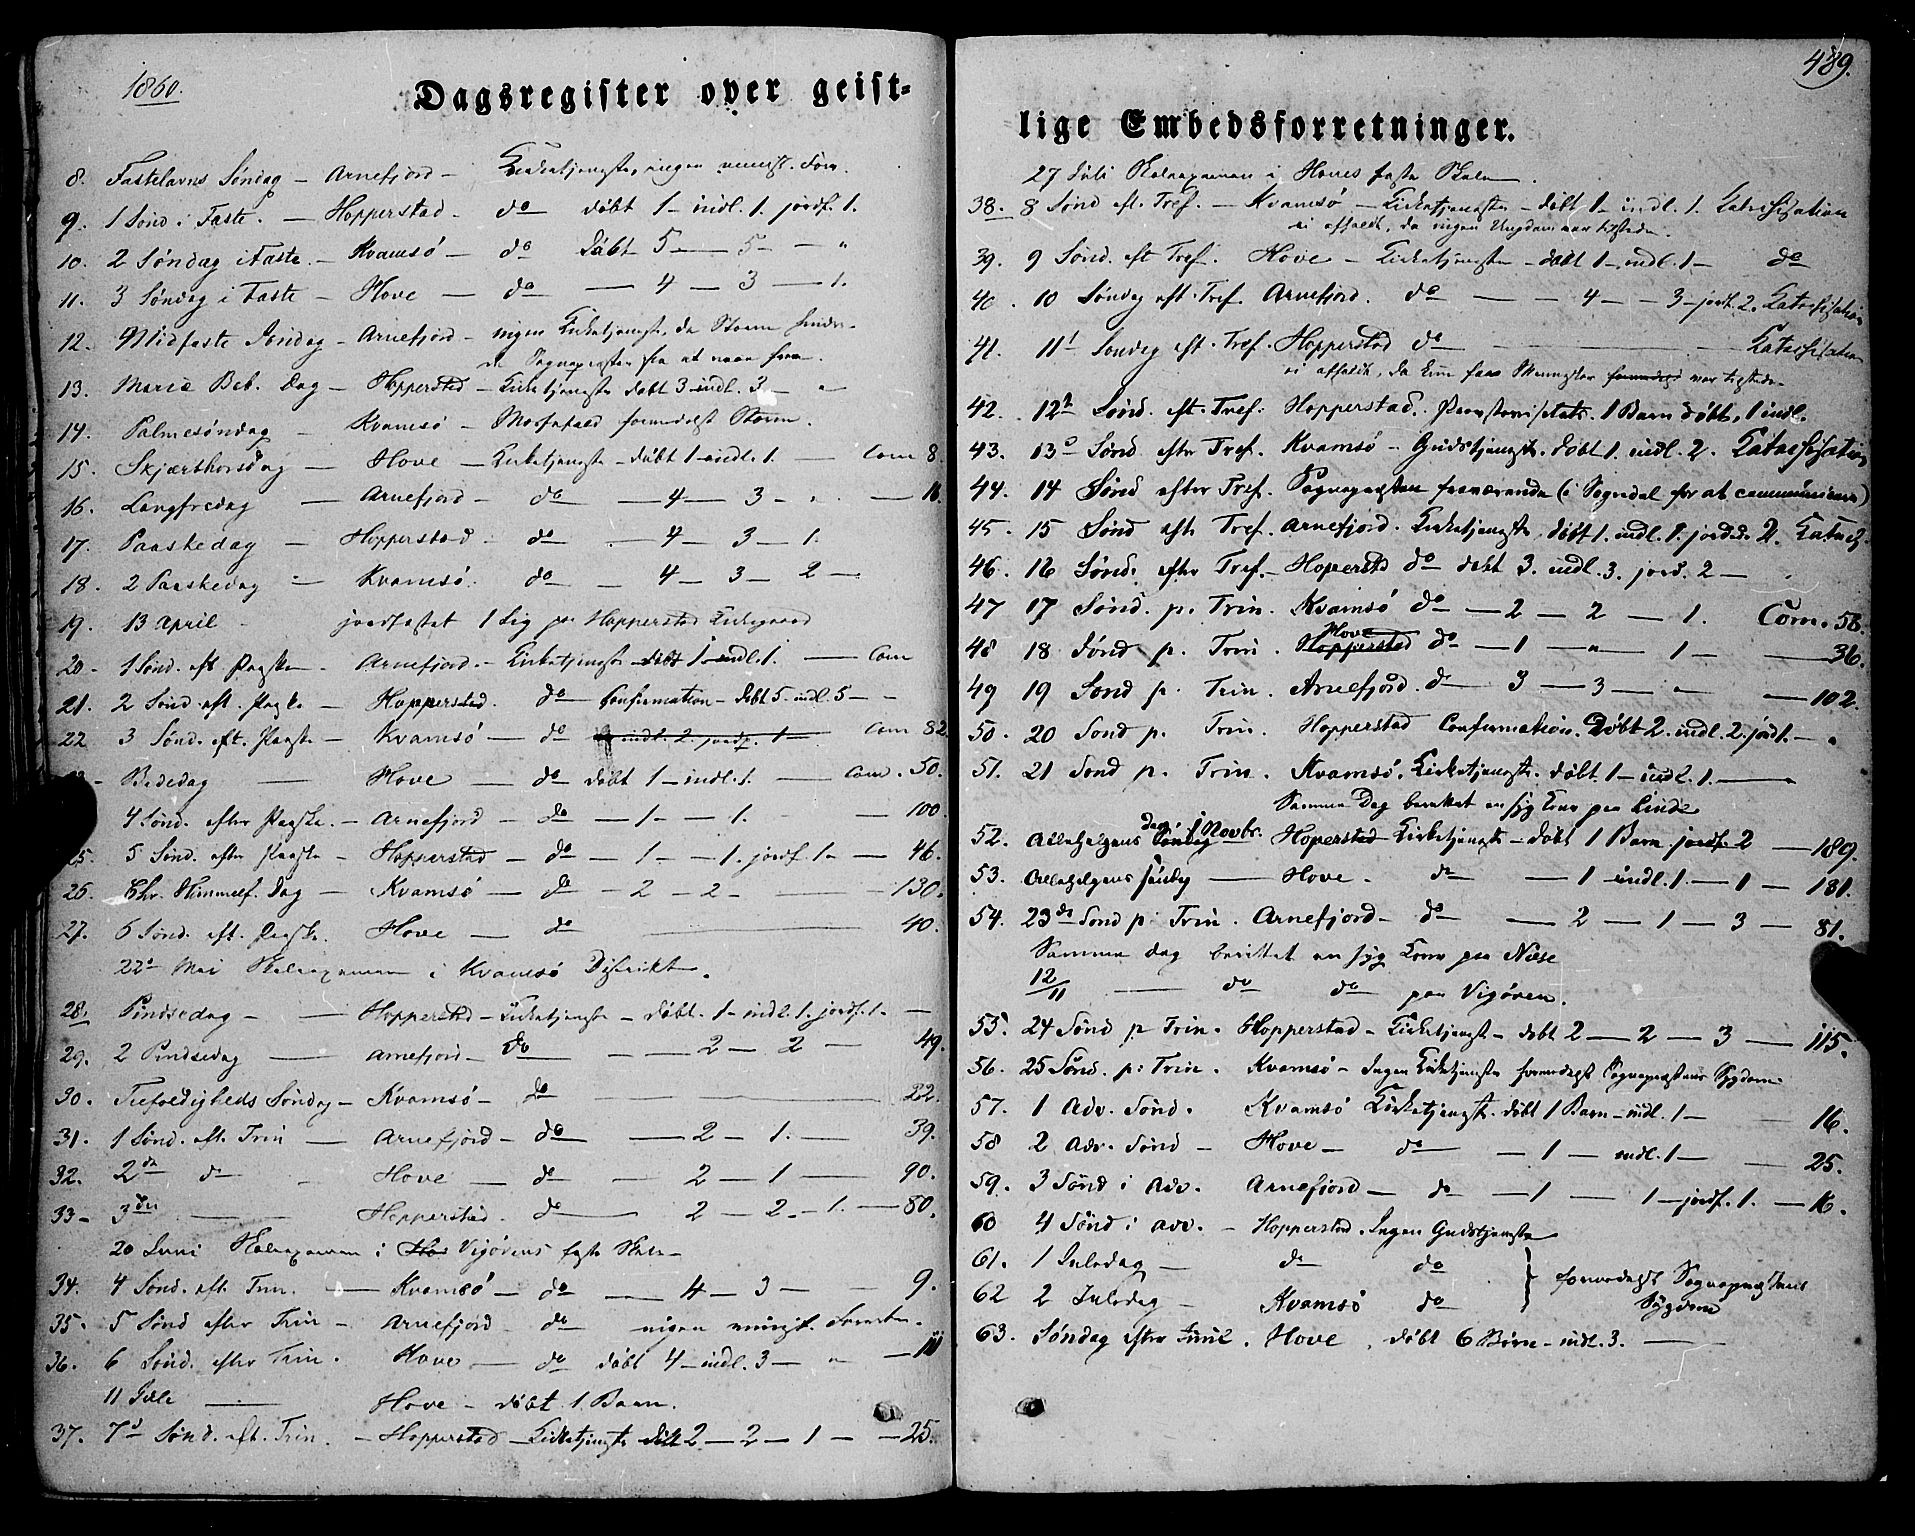 1860.
Dagsregister over geist-
8. Fastelavns Søndag – Arnefjord – Kirketjeneste, ingen minist. Form.
9. 1 Sønd i Faste. – Hopperstad – do døbt 1 – indl. 1. jordf. 1.
10. 2 Søndag i Faste. – Kvamsö – do døbt 5 – 5 – – "
11. 3 Søndag i Faste – Hove – do – 4 – 3 – 1.
12. Midfaste Søndag – Arnefjord – ingen Kirketjeneste, da Storm hindre-
de Sognepresten fra at naae frem.
13. Mariæ Beb. Dag – Hopperstad – Kirketjeneste døbt 3 – indl. 3 – "
14. Palmesøndag – Kvamsö – Messefald formedelst Storm.
15. Skjærthorsdag – Hove – Kirketjeneste – døbt 1 – indl. 1. – Com 8.
16. Langfredag – Arnefjord – do – 4 – 3 – " – 16.
17. Paaskedag – Hopperstad – do – 4 – 3 – 1.
18. 2 Paaskedag – Kvamsö. – do – 4 – 3 – 2 –
19. 13 April – jordfæstet 1 Lig paa Hopperstad Kirkegaard
20. 1 Sønd. eft Paaske. – Arnefjord. – Kirketjeneste døbt 1 – indl. 1. – Com
21. 2 Sønd. eft. Paaske – Hopperstad. do Confirmation – døbt 5. indl. 5 – –
22 3 Sønd. eft. Paaske – Kvamsö – do indl. 2. jordf. 1 – Com 82.
Bededag – Hove – do døbt 1 – indl. 1. – Com. 50.
4 Sønd. efter Paaske. – Arnefjord – do – 1 – – 1. – 100.
25. 5 Sønd. efter Paaske – Hopperstad – do – 1 – – 1. jordf. 1 – – 46.
26. Chr. Himmelf. Dag – Kvamsö – do – 2 – 2 – – 130.
27. 6 Sønd. eft. Paaske. Hove – do – 40.
22de Mai Skoleexamen i Kvamsö Distrikt.
28. Pindsedag – – Hopperstad – Kirketjeneste – døbt. 1 – indl. 1. jordf. 1. –
29. 2 Pindsedag – Arnefjord – do – – 2 – 2 – 49.
30. Trefoldigheds Søndag – Kvamsö – do – 22.
31. 1 Sønd. eft. Trin – Arnefjord – do – 2 – 1. – 39.
32. 2de do – Hove – do – 2 – 1 – 90.
33 – 3die – – Hopperstad. – do – 2 – 2 – 1. – 80.
20 Juni Skoleexamen i Vigørens faste Skole –
34. 4 Sønd. eft. Trin. – Kvamsö – do – 4 – 3 – – 9.
35. 5 Sønd efter Trin – Arnefjord – do ingen minist. Forretn.
36. 6 Sønd. efter Trin. Hove – do døbt 4 – indl. 3 – " –
11 Juli – Hove – døbt 1 Barn.
37. 7de Sønd. eft. Trin. – Hopperstad – Kirketjeneste døbt 2 – 2 – 1 – – 25.
489.
lige Embedsforretninger.
27 Juli Skoleexamen i Hoves faste Skole.
38. 8 Sønd eft. Tref. – Kvamsö – Kirketjeneste – døbt 1 – indl. 1. Katechisation
ei afholdt, da ingen Ungdom var tilstede.
39. 9 Sønd. eft Tref. Hove – Kirketjeneste – døbt 1 – indl. 1 – do
40. 10 Søndag eft. Tref. Arnefjord. do – – 4 – – 3 – jordf. 2. Katechisation
41. 11te Søndag eft. Tref. Hopperstad do – Katechisation
ei afholdt, da kun faa Mennesker var tilstede.
42. 12te Sønd. eft. Tref. Hopperstad. Provstevisitats. 1 Barn døbt, 1 indl.
43. 13de Sønd efter Tref. Kvamsö – Gudstjeneste. døbt 1. indl. 2. Katechisation
44. 14 Sønd efter Tref. Sognepresten fraværende (i Sogndal for at communicere)
45. 15 Sønd eft. Tref. Arnefjord. Kirketjeneste. døbt 1. indl. 1. jordf. 2. Katech.
46. 16 Sønd. efter Tref. – Hoperstad do døbt 3. indl. 3. jord. 2 –
47 17 Sønd. p. Trin. Kvamsö do – 2 – 2 – 1. Com. 58.
48 18 Sønd p. Trin. Hopperstad Hove do – 1 – " – 1 – – 36.
49 19 Sønd p. Trin. Arnefjord. do 3 – 3 – " – – 102.
50. 20 Sønd p. Trin. Hopperstad Confirmation. Døbt 2. indl. 2. jordf. – "
51. 21 Sønd p. Trin. Kvamsö. Kirketjeneste. døbt 1 – indl. 1. –
Samme Dag berettet en syg Kone paa Linde
52. Allehelgens Søndag dag, 1 Novbr. Hoperstad Kirketjeneste – døbt 1 Barn. jordf. 2 – 189.
53. Allehelgens Søndag – Hove. – do – 1 indl. 1. – 1 – 181.
54. 23de Sønd p. Trin. Arnefjord – do – 2 – 1 – 3 – 81.
Samme dag berettet en syg Kone paa Næse
12/11 – do do paa Vigøren.
55. 24 Sønd p Trin. Hopperstad – Kirketjeneste – døbt 2 – 2 – 3 – 115.
56. 25 Sønd. p. Trin. Kvamsö – Ingen Kirketjeneste formedelst Sognepræstens Sygdom
57. 1 Adv. Sønd. Kvamsö Kirketjeneste. døbt 1 Barn – indl. 1 – – 16.
58 2 Adv. Sønd – Hove – do – 1 – indl. 1 – – 25.
59. 3 Sønd i Adv. Arnefjord – do – 1 – 1 – jordf. 1. – 16.
60 4 Sønd i Adv. – Hopperstad. Ingen Gudstjeneste
61. 1 Juledag – do do formedelst Sognepræstens
62 2 Juledag – Kvamsö do Sygdom
63. Søndag efter Juul. Hove. døbt 6 Børn – indl. 3. –